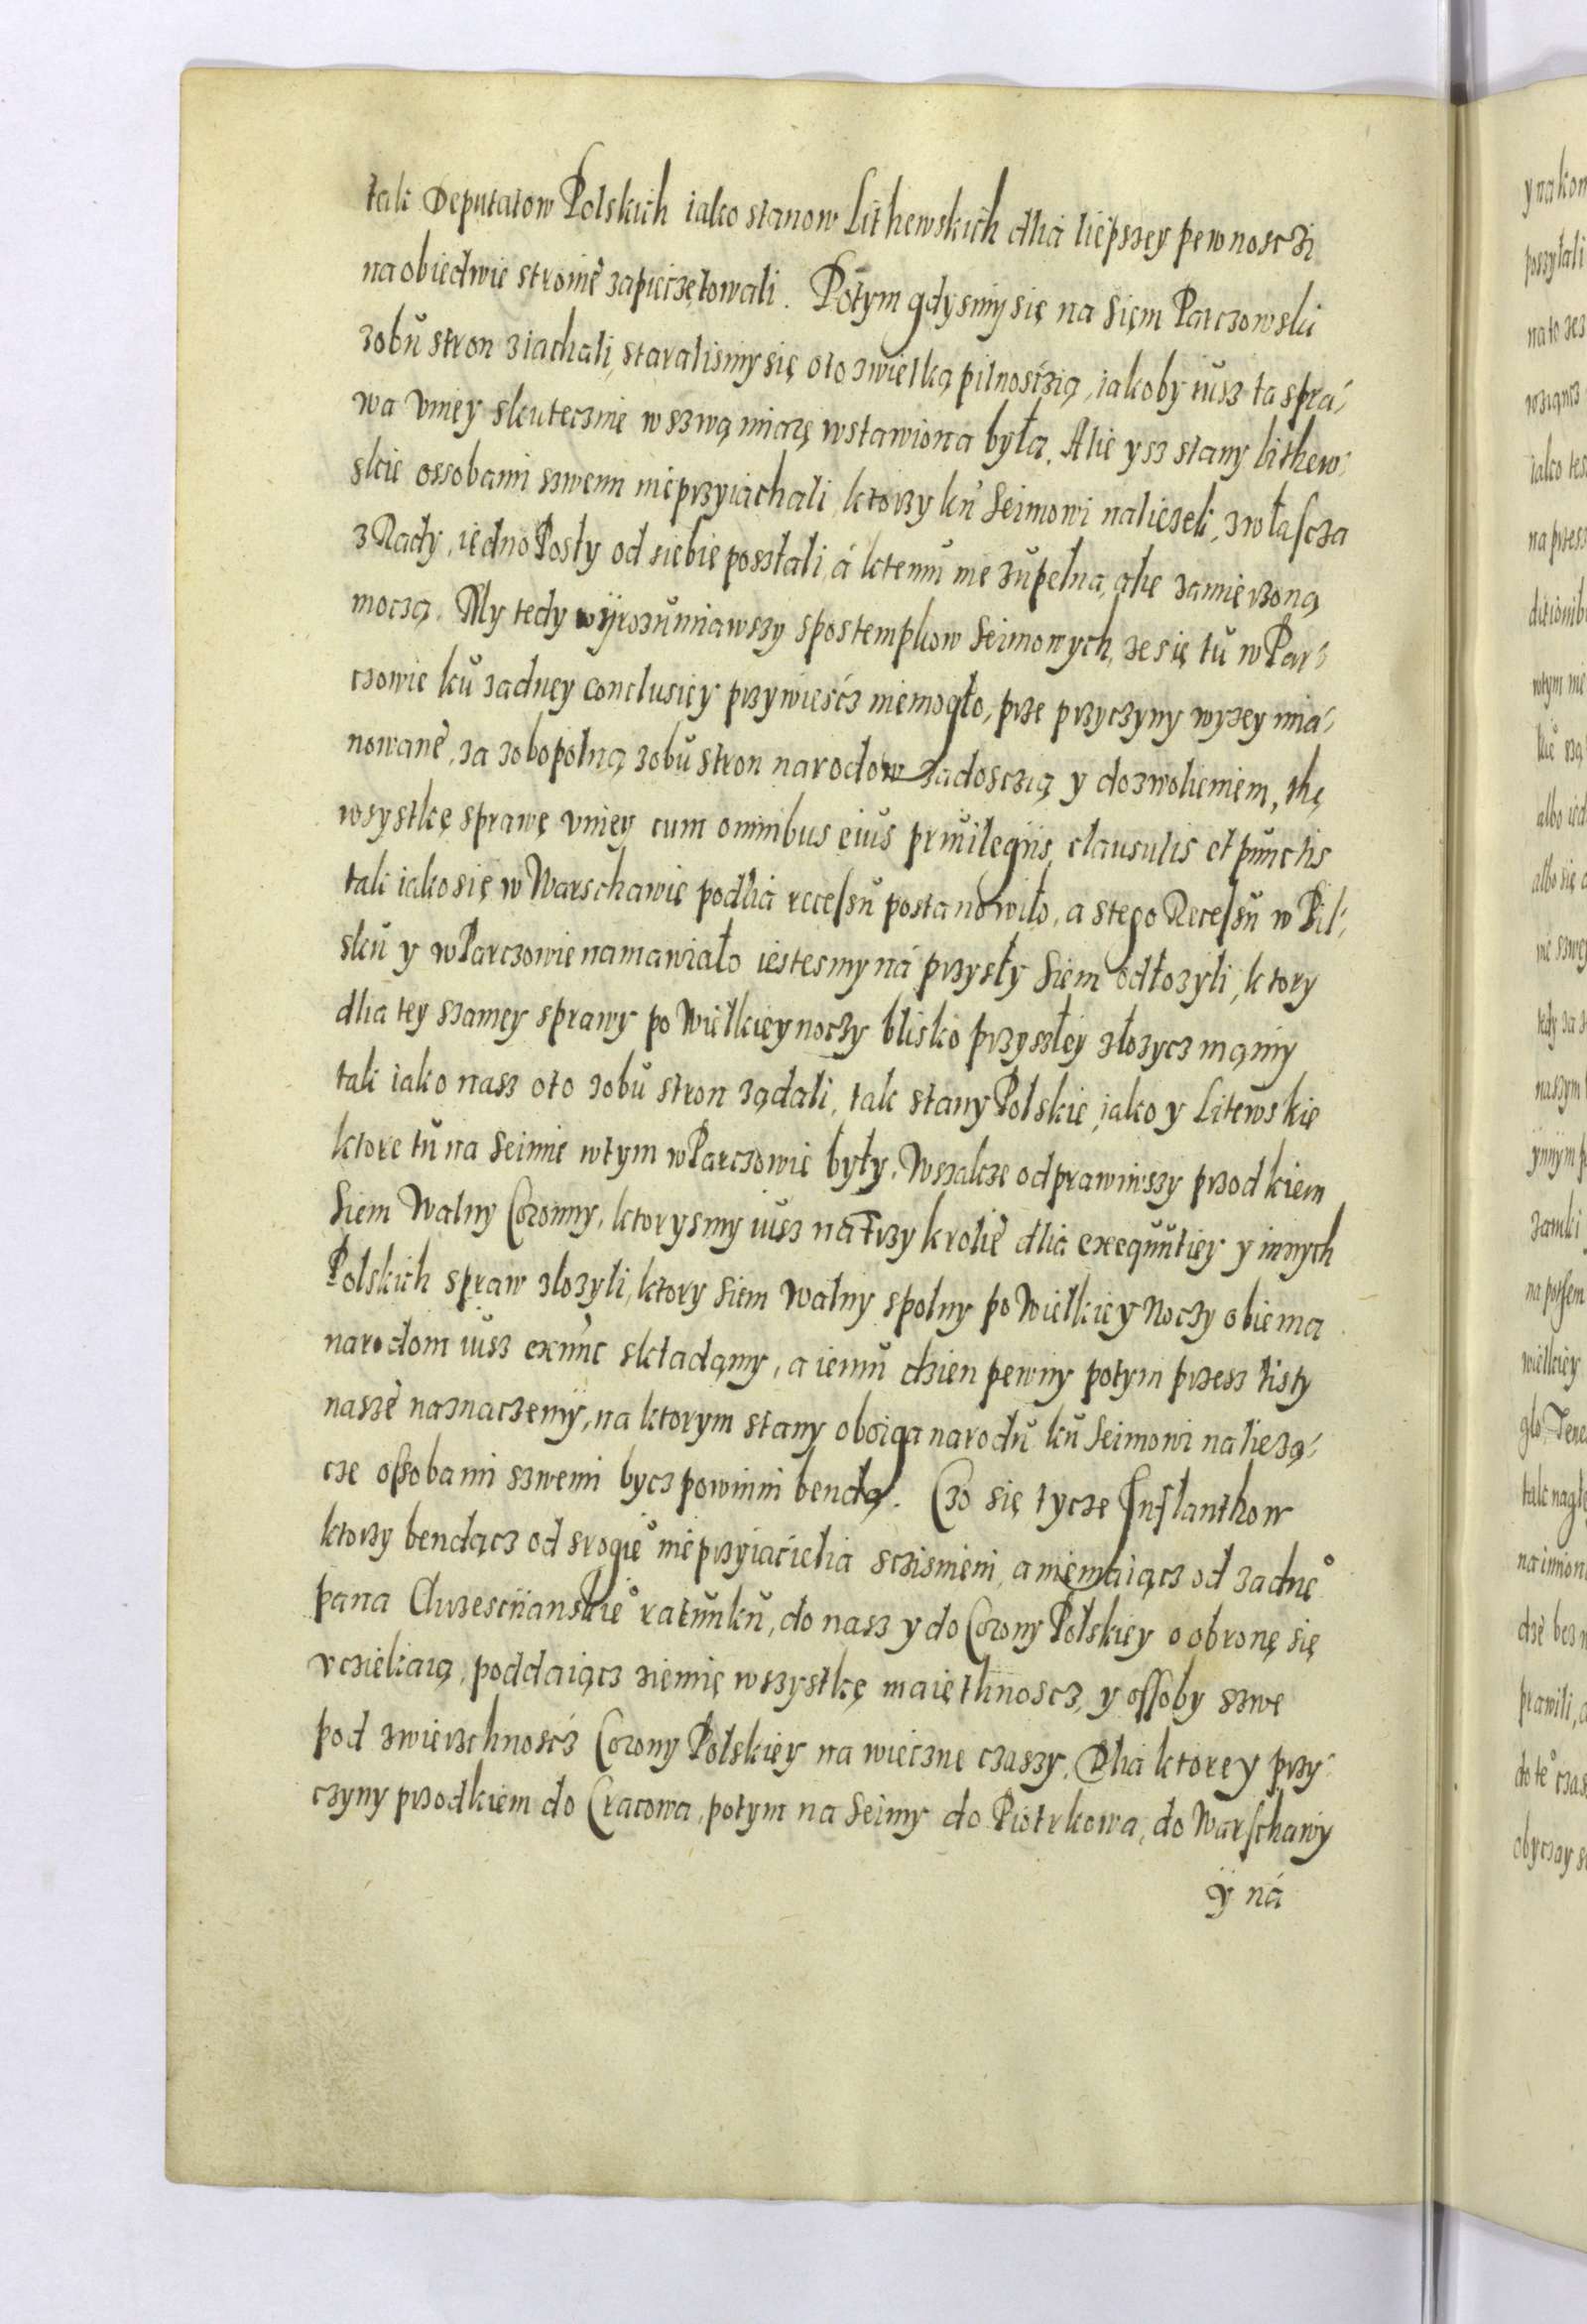 tak Deputatow Polskich iako stanow Lithewskich dlia liepszey pewnosczi
na obiedwie stronie zapieczętowali. Potym gdysmy się na Siem Parczowski
z obu stron ziachali, staralismy się oto z wielką pilnoscią, iakoby iusz ta spra-
wa vniey skutecznie w szwą miarę wstawiona była. Alie ysz stany lithew-
skie ossobami szwemi nie przyiachali, ktorzy ku Seimowi naliezeli, zwłascza
z Rady, iedno Posły od siebie posszłali, á ktemu nie zupelną, alie zamierzoną
moczą. My tedy wyrozumiawszy s postempkow Seimowych, ze się tu w Par-
czowie ku zadney conclusiey przywiescz niemogło, prze przyczyny wyzey mia-
nowane, za zobopolną z obu stron narodow zadosczią y dozwoliemiem, thę
wsystkę sprawę vniey cum omnibus eius priuilegijs, clausulis et punctis
tak iako się w Warschawie podlia recessu postanowiło, a s tego Recessu w Bil-
sku y w Parczowie namawiało iestesmy ná przysły Siem odłozyli, ktory
dlia tey szamey sprawy po Wielkiey noczy blisko przyszłey złozycz mąmy
tak iako nasz oto z obu stron ządali, tak stany Polskie, iako y Litewskie
ktore tu na Seimie w tym w Parczowie były. Wszakze odprawiwszy przodkiem
Siem Walny Coronny, ktorysmy iusz na Trzy krolie dlia exequutiey y innych
Polskich spraw zlozyli, ktory Siem Walny spolny po Wielkiey Noczy obiema
narodom iusz ex nunc składąmy, a iemu dzien pewny potym przesz listy
nasze naznaczemy, na ktorym stany oboiga narodu ku Seimowi naliezą-
cze ossobami szwemi bycz powinni bendą. Czo się tycze Inflanthow
ktorzy bendącz od srogie° nieprzyiacielia scisnieni, a niemaiącz od zadne°
pana Chrzescijanskie° ratunku, do nasz y do Corony Polskiey o obronę się
vcziekaią, poddaiącz ziemię wszystkę maięthnoscz, y ossoby szwe
pod zwierzchnoscz Corony Polskiey na wieczne czaszy. Dlia ktorey przy-
czyny przodkiem do Cracowa, potym na Seimy do Piotrkowa, do Warschawy
y ná